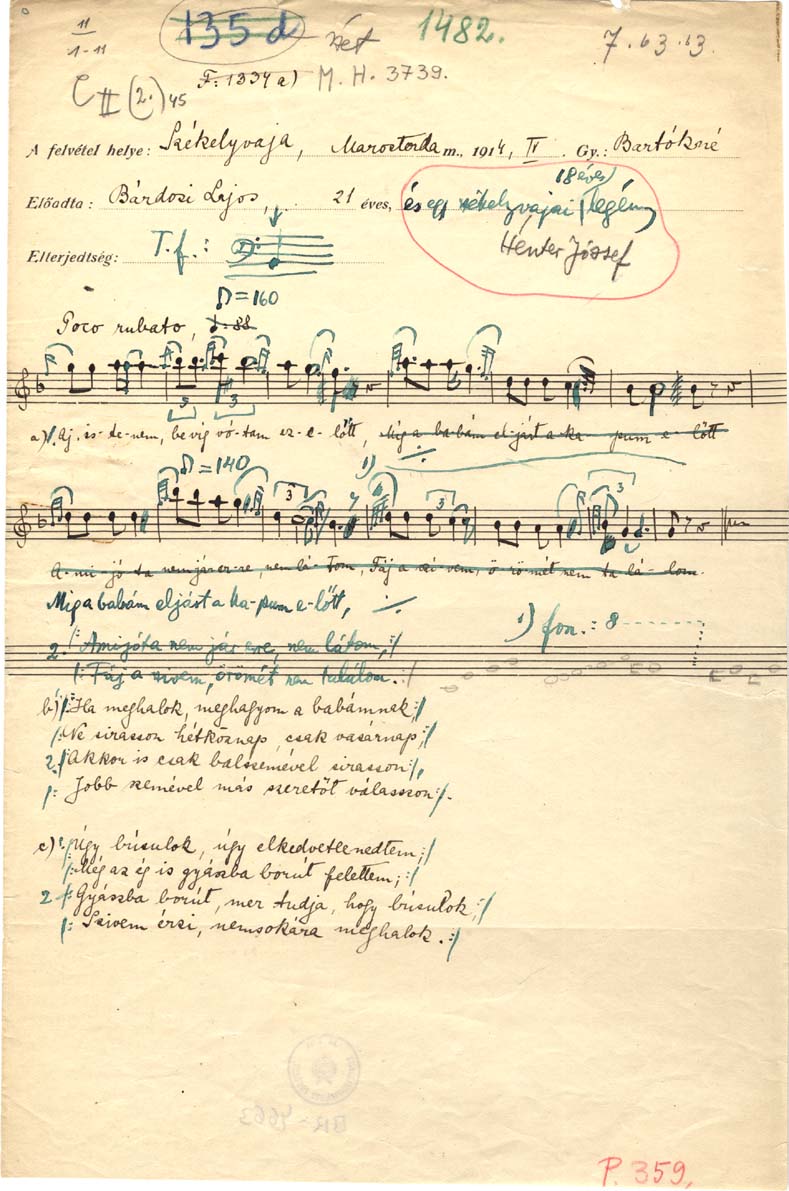 11
1-11
135 d
1482.
7.63.63.
F. 1334 a) M. H. 3739.
C II (2.) 45
A felvétel helye: Székelyvaja, Marostorda m., 1914, IV. Gy.: Bartókné
18 éves
Előadta: Bárdosi Lajos, 21 éves, és egy székelyvajai legény
Hénter József
Elterjedtség: T.f.:
♪=160
Poco rubato, ♩=88
3 3
a) /: Aj, is-te-nem, be víg vó-tam ez-e-lőtt, Míg a ba-bám el-járt a ka-pum e-lőtt
♪=140
1)
3 3 3
A-mi-jó-ta nem jár er-re, nem lá-tom, Fáj a szí-vem, ö-rö-mét nem ta-lá-lom.
Míg a babám eljárt a ka-pum e-lőtt,
1) fon.: 8
2. /: Amijóta nem jár erre, nem látom, :/
/: Fáj a szívem, örömét nem találom. :/
b) /: Ha meghalok, meghagyom a babámnak, :/
/: Ne sirasson hétköznap, csak vasárnap, :/
2. /: Akkor is csak balszemével sirasson :/,
/: Jobb szemével más szeretőt válasszon :/.
c) /: Úgy búsulok, úgy elkedvetlenedtem, :/
/: Még az ég is gyászba borút felettem, :/
2 /: Gyászba borút, mer tudja, hogy búsulok, :/
/: Szivem érzi, nemsokára meghalok. :/
BR-4663
P. 359.